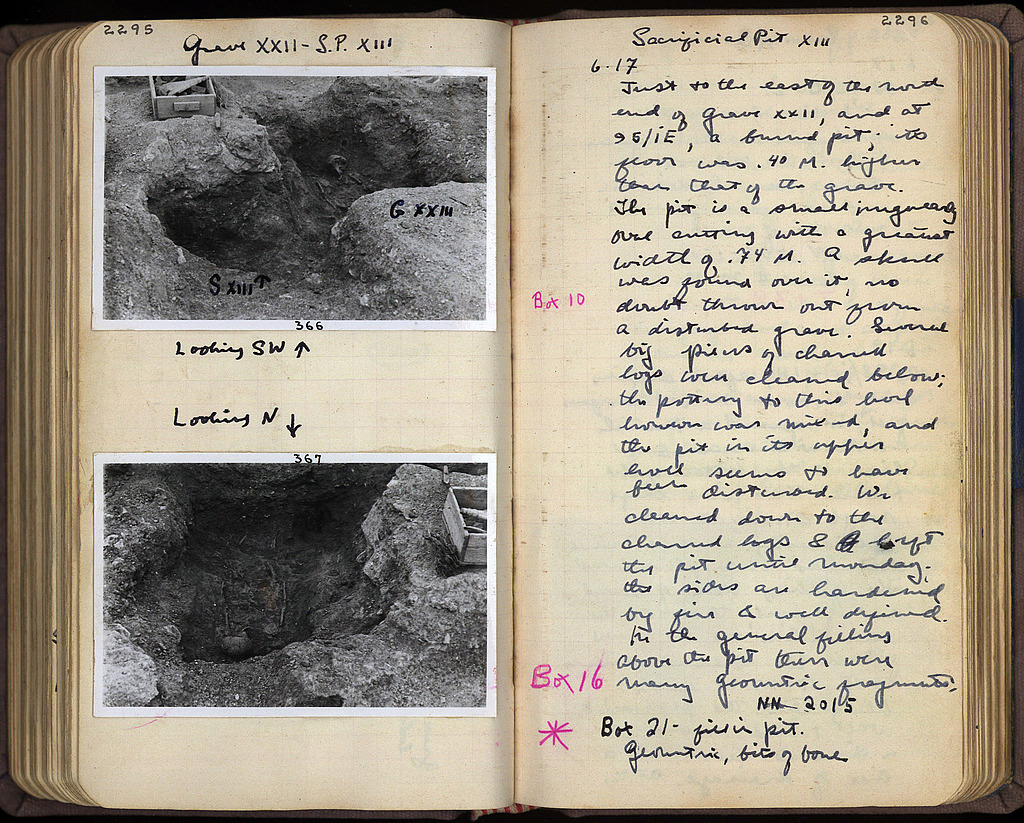 2295
Grave XXII - S.P. XIII
G XXIII
S XIII ↑
366
Looking SW ↑
Looking N ↓
367
2296
Sacrificial Pit XIII
6.17
Just to the east of the north
end of Grave XXII, and at
95/1E, a burned pit; its
floor was .40 M. higher
than that of the grave.
The pit is a small irregularly
oval cutting with a greatest
width of .74 M. A skull
was found over it, no
Box 10
doubt thrown out from
a disturbed grave. Several
big pieces of charred
logs were cleaned below;
the pottery to this level
however was mixed, and
the pit in its upper
level seems to have
been disturbed. We
cleaned down to the
charred logs & left
the pit until Monday.
the sides are hardened
by fire & well defined.
In the general filling
above the pit there were
Box 16
many geometric fragments.
NN 2015
* Box 21 - fill in pit.
Geometric, bits of bone